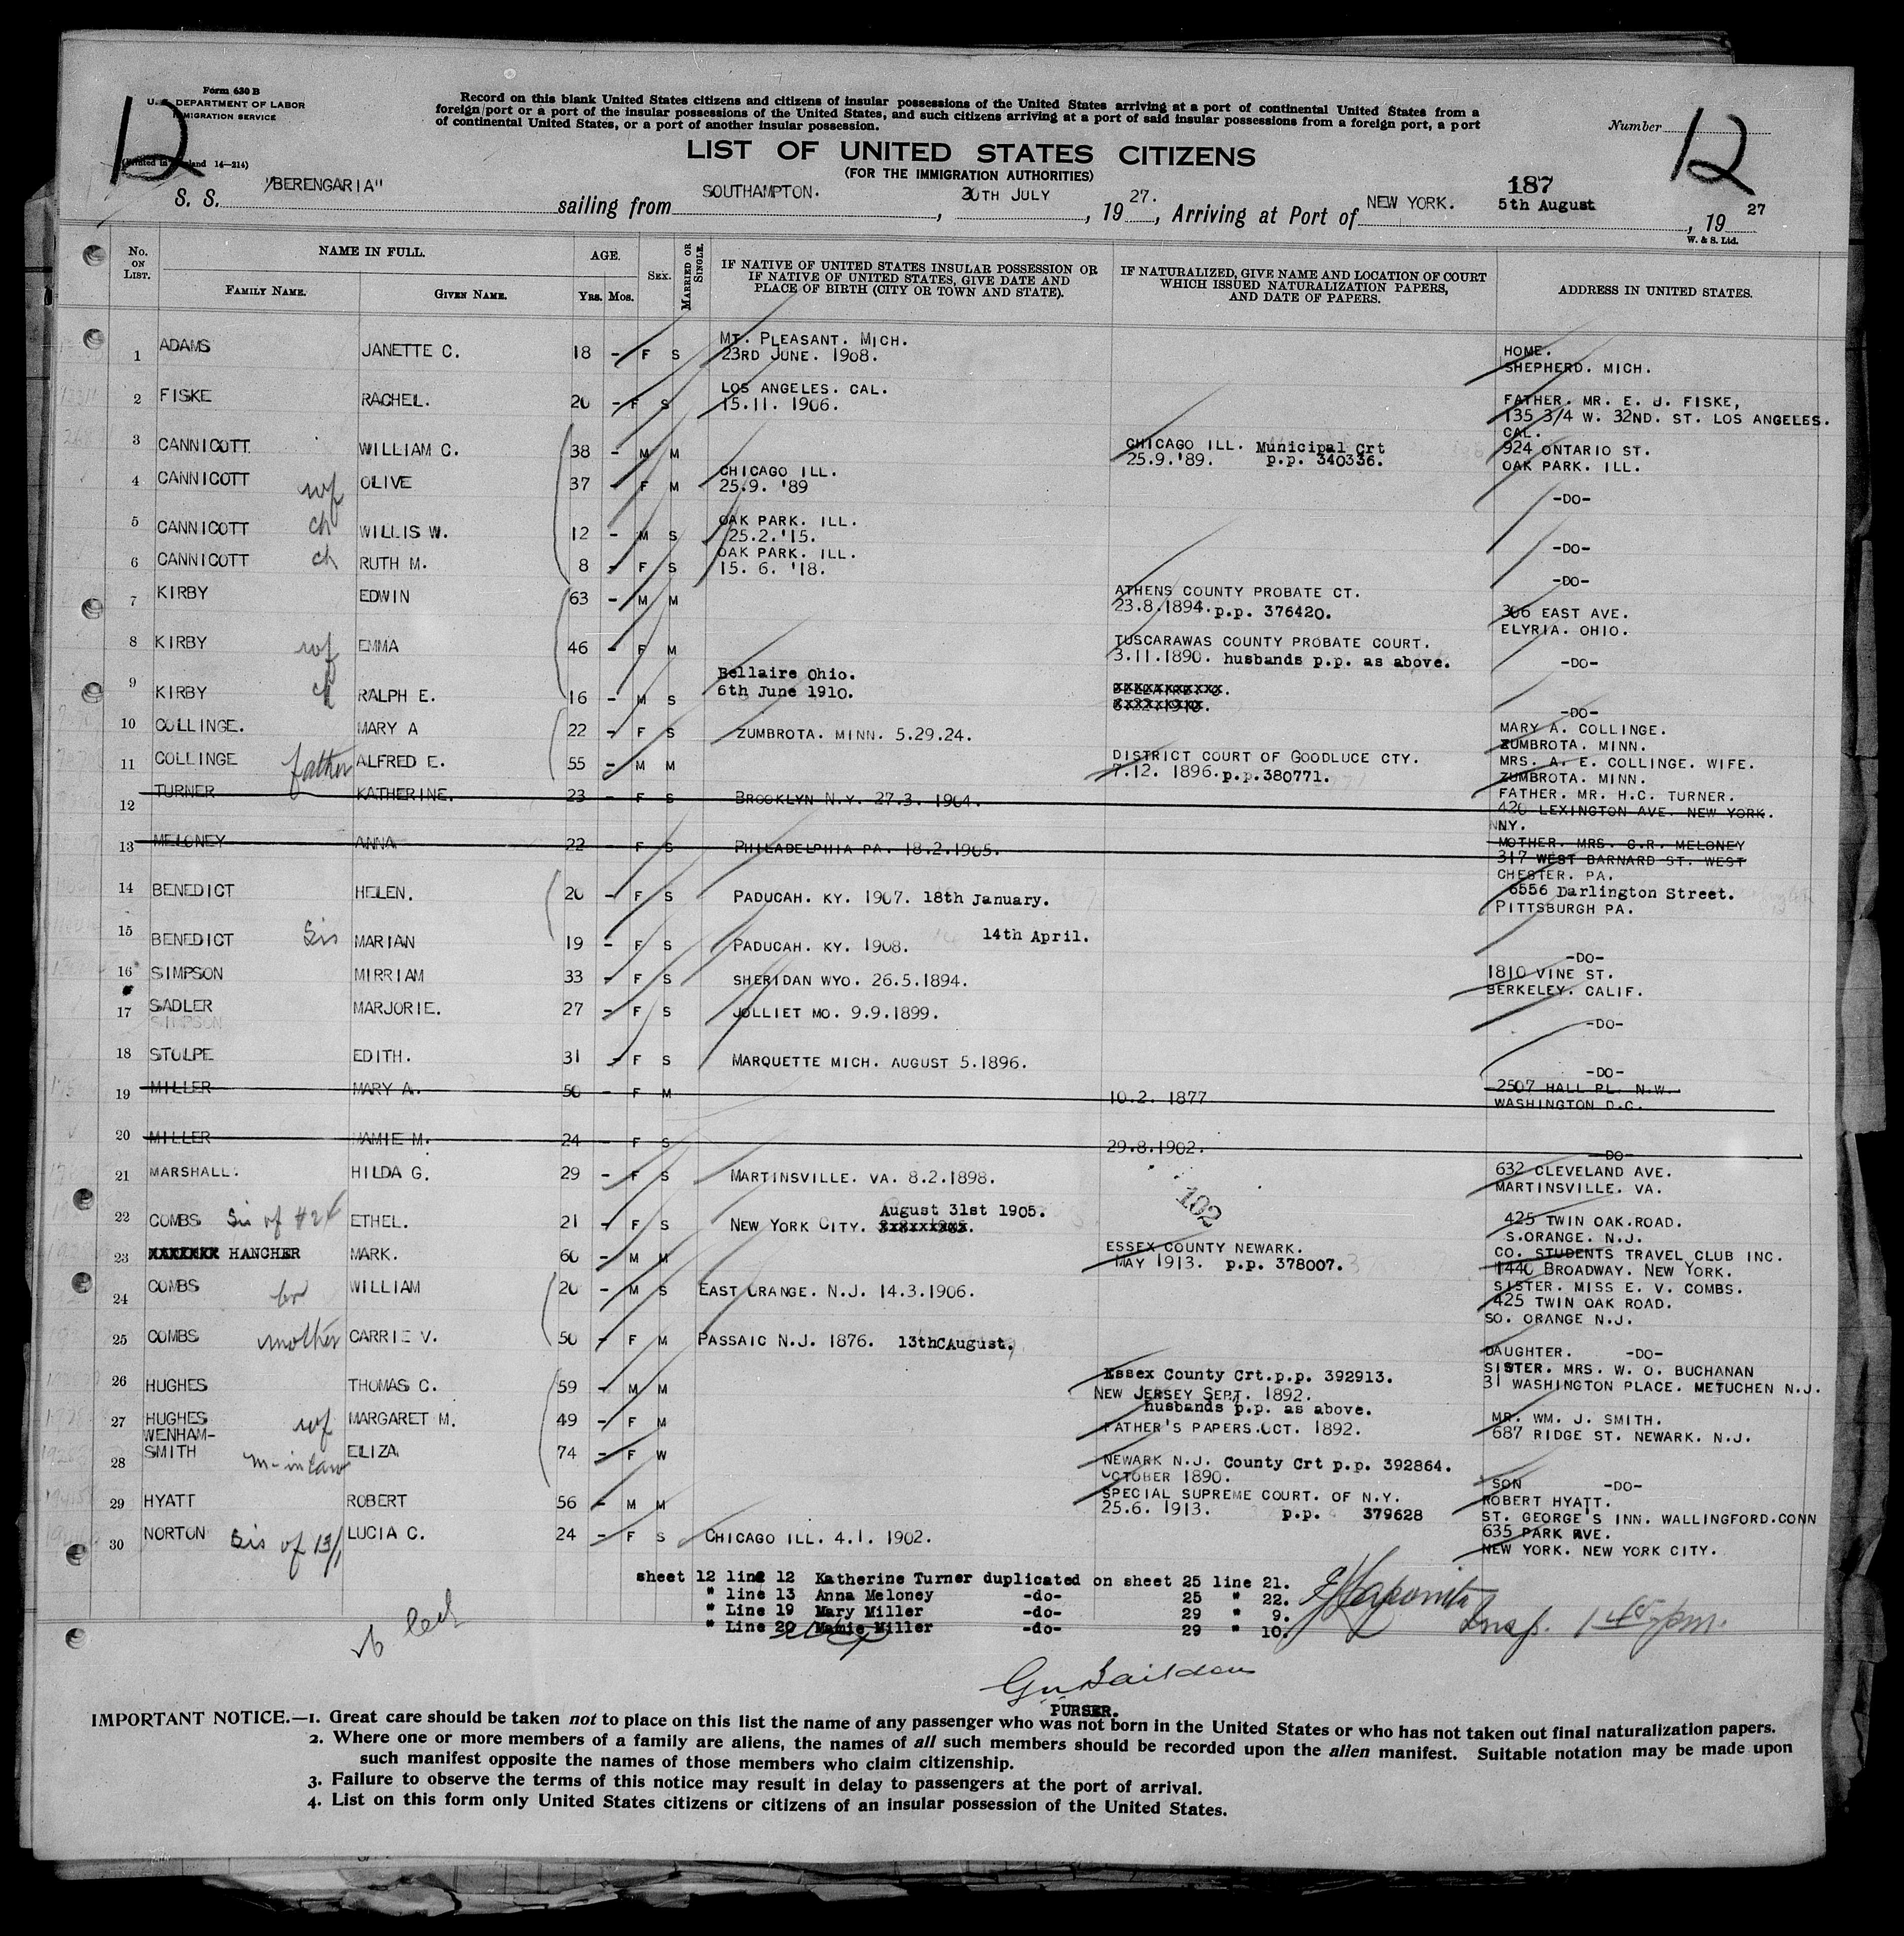 Form 630 B
U. S. DEPARTMENT OF LABOR
IMMIGRATION SERVICE
12
Record on this blank United States citizens and citizens of insular possessions of the United States arriving at a port of continental United States from a
foreign port or a port of the insular possessions of the United States, and such citizens arriving at a port of said insular possessions from a foreign port, a port
of continental United States, or a port of another insular possession.
Number 12
LIST OF UNITED STATES CITIZENS
(FOR THE IMMIGRATION AUTHORITIES)
187
S. S. "BERENGARIA" sailing from SOUTHAMPTON. , 30TH JULY , 19 27. , Arriving at Port of NEW YORK. 5th August , 19 27
W. & S. Ltd.
No. ON LIST. NAME IN FULL. FAMILY NAME. GIVEN NAME. AGE. Yrs. Mos. SEX. MARRIED OR SINGLE. IF NATIVE OF UNITED STATES INSULAR POSSESSION OR IF NATIVE OF UNITED STATES, GIVE DATE AND PLACE OF BIRTH (CITY OR TOWN AND STATE). IF NATURALIZED, GIVE NAME AND LOCATION OF COURT WHICH ISSUED NATURALIZATION PAPERS, AND DATE OF PAPERS. ADDRESS IN UNITED STATES.
1 ADAMS JANETTE C. 18 - F S MT. PLEASANT. MICH. 23RD JUNE. 1908. HOME. SHEPHERD. MICH.
2 FISKE RACHEL. 20 - F S LOS ANGELES. CAL. 15.11. 1906. FATHER. MR. E. J. FISKE, 135 3/4 W. 32ND. ST. LOS ANGELES. CAL.
3 CANNICOTT WILLIAM C. 38 - M M CHICAGO ILL. Municipal Crt 25.9.'89. p.p. 340336. 924 ONTARIO ST. OAK PARK. ILL.
4 CANNICOTT wf OLIVE 37 - F M CHICAGO ILL. 25.9. '89 -DO-
5 CANNICOTT ch WILLIS W. 12 - M S OAK PARK. ILL. 25.2.'15. -DO-
6 CANNICOTT ch RUTH M. 8 - F S OAK PARK. ILL. 15. 6. '18. -DO-
7 KIRBY EDWIN 63 - M M ATHENS COUNTY PROBATE CT. 23.8.1894. p.p. 376420. 306 EAST AVE. ELYRIA. OHIO.
8 KIRBY wf EMMA 46 - F M TUSCARAWAS COUNTY PROBATE COURT. 3.11.1890. husbands p.p. as above. -DO-
9 KIRBY ch RALPH E. 16 - M S Bellaire Ohio. 6th June 1910. -DO-
10 COLLINGE. MARY A 22 - F S ZUMBROTA. MINN. 5.29.24. MARY A. COLLINGE. ZUMBROTA. MINN.
11 COLLINGE father ALFRED E. 55 - M M DISTRICT COURT OF GOODLUCE CTY. 7.12. 1896. p.p.380771. MRS. A. E. COLLINGE. WIFE. ZUMBROTA. MINN.
12 TURNER KATHERINE. 23 - F S BROOKLYN N.Y. 27.3. 1904. FATHER. MR. H.C. TURNER. 420 LEXINGTON AVE. NEW YORK. NY.
13 MELONEY ANNA 22 - F S PHILADELPHIA PA. 18.2.1905. MOTHER. MRS. C.R. MELONEY 317 WEST BARNARD ST. WEST CHESTER. PA.
14 BENEDICT HELEN. 20 - F S PADUCAH. KY. 1907. 18th January. 6556 Darlington Street. PITTSBURGH PA.
15 BENEDICT Sis MARIAN 19 - F S PADUCAH. KY. 1908. 14th April. -DO-
16 SIMPSON MIRRIAM 33 - F S SHERIDAN WYO. 26.5.1894. 1810 VINE ST. BERKELEY. CALIF.
17 SADLER MARJORIE. 27 - F S JOLLIET MO. 9.9.1899. -DO-
SIMPSON
18 STOLPE EDITH. 31 - F S MARQUETTE MICH. AUGUST 5.1896. -DO-
19 MILLER MARY A. 50 - F M 10.2. 1877 2507 HALL PL. N.W. WASHINGTON D.C.
20 MILLER MAMIE M. 24 - F S 29.8.1902. -DO-
21 MARSHALL. HILDA G. 29 - F S MARTINSVILLE. VA. 8.2.1898. 632 CLEVELAND AVE. MARTINSVILLE. VA.
102
22 COMBS Sis of #24 ETHEL. 21 - F S NEW YORK CITY. August 31st 1905. 425 TWIN OAK.ROAD. S.ORANGE. N.J.
23 XXXXXXX HANCHER MARK. 60 - M M ESSEX COUNTY NEWARK. MAY 1913. p.p. 378007. CO. STUDENTS TRAVEL CLUB INC. 1440 BROADWAY. NEW YORK.
24 COMBS br WILLIAM 20 - M S EAST ORANGE. N.J. 14.3.1906. SISTER. MISS E. V. COMBS. 425 TWIN OAK ROAD. SO. ORANGE N.J.
25 COMBS mother CARRIE V. 50 - F M PASSAIC N.J. 1876. 13th August. DAUGHTER. -DO-
26 HUGHES THOMAS C. 59 - M M Essex County Crt.p.p. 392913. NEW JERSEY SEPT. 1892. SISTER. MRS. W. O. BUCHANAN 31 WASHINGTON PLACE. METUCHEN N.J.
27 HUGHES wf MARGARET M. 49 - F M husbands p.p. as above. FATHER'S PAPERS.OCT. 1892. MR. WM. J. SMITH. 687 RIDGE ST. NEWARK. N.J.
28 WENHAM-SMITH m-in law ELIZA 74 - F W NEWARK N.J. County Crt p.p. 392864. OCTOBER 1890. SON -DO-
29 HYATT ROBERT 56 - M M SPECIAL SUPREME COURT. OF N.Y. 25.6. 1913. p.p. 379628 ROBERT HYATT. ST. GEORGE'S INN. WALLINGFORD.CONN
30 NORTON Sis of 13/1 LUCIA C. 24 - F S CHICAGO ILL. 4.1. 1902. 635 PARK AVE. NEW YORK. NEW YORK CITY.
sheet 12 line 12 Katherine Turner duplicated on sheet 25 line 21.
" line 13 Anna Meloney -do- 25 " 22.
" Line 19 Mary Miller -do- 29 " 9.
" Line 20 Mamie Miller -do- 29 " 10.
Insp. 1 45 pm.
PURSER.
IMPORTANT NOTICE.—1. Great care should be taken not to place on this list the name of any passenger who was not born in the United States or who has not taken out final naturalization papers.
2. Where one or more members of a family are aliens, the names of all such members should be recorded upon the alien manifest. Suitable notation may be made upon
such manifest opposite the names of those members who claim citizenship.
3. Failure to observe the terms of this notice may result in delay to passengers at the port of arrival.
4. List on this form only United States citizens or citizens of an insular possession of the United States.